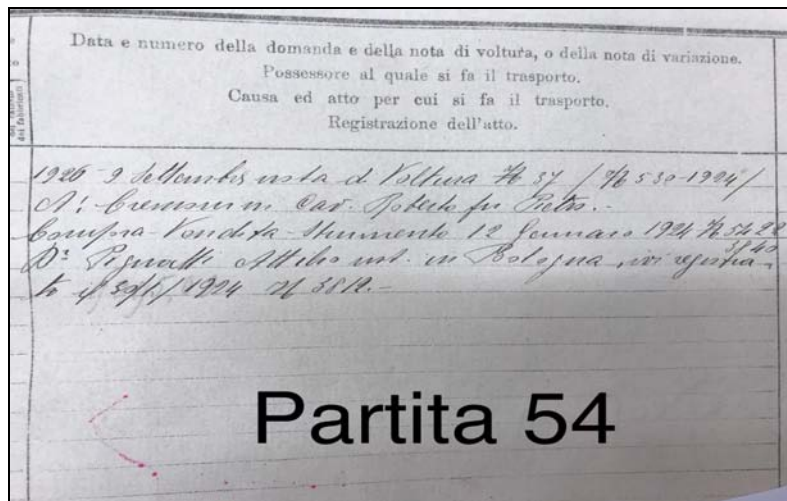 Data e numero della domanda e della nota di voltura, o della nota di variazione.
Possessore al quale si fa il trasporto.
Causa ed atto per cui si fa il trasporto.
Registrazione dell'atto.
dei fabbricati
1926 9 Settembre nota d Voltura N 37 / N 530-1924 /
A: Cav. Roberto fu Pietro.-
Compra-Vendita-Strumento 12 Gennaio 1924 N 5422
3840
Dr Attilio not. in Bologna, ivi registra-
to il 1924 N 3812.-
Partita 54